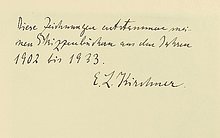 Diese Zeichnungen entstammen mei-
nen Skizzenbüchern aus den Jahren
1902 bis 1933.
E. L. Kirchner.